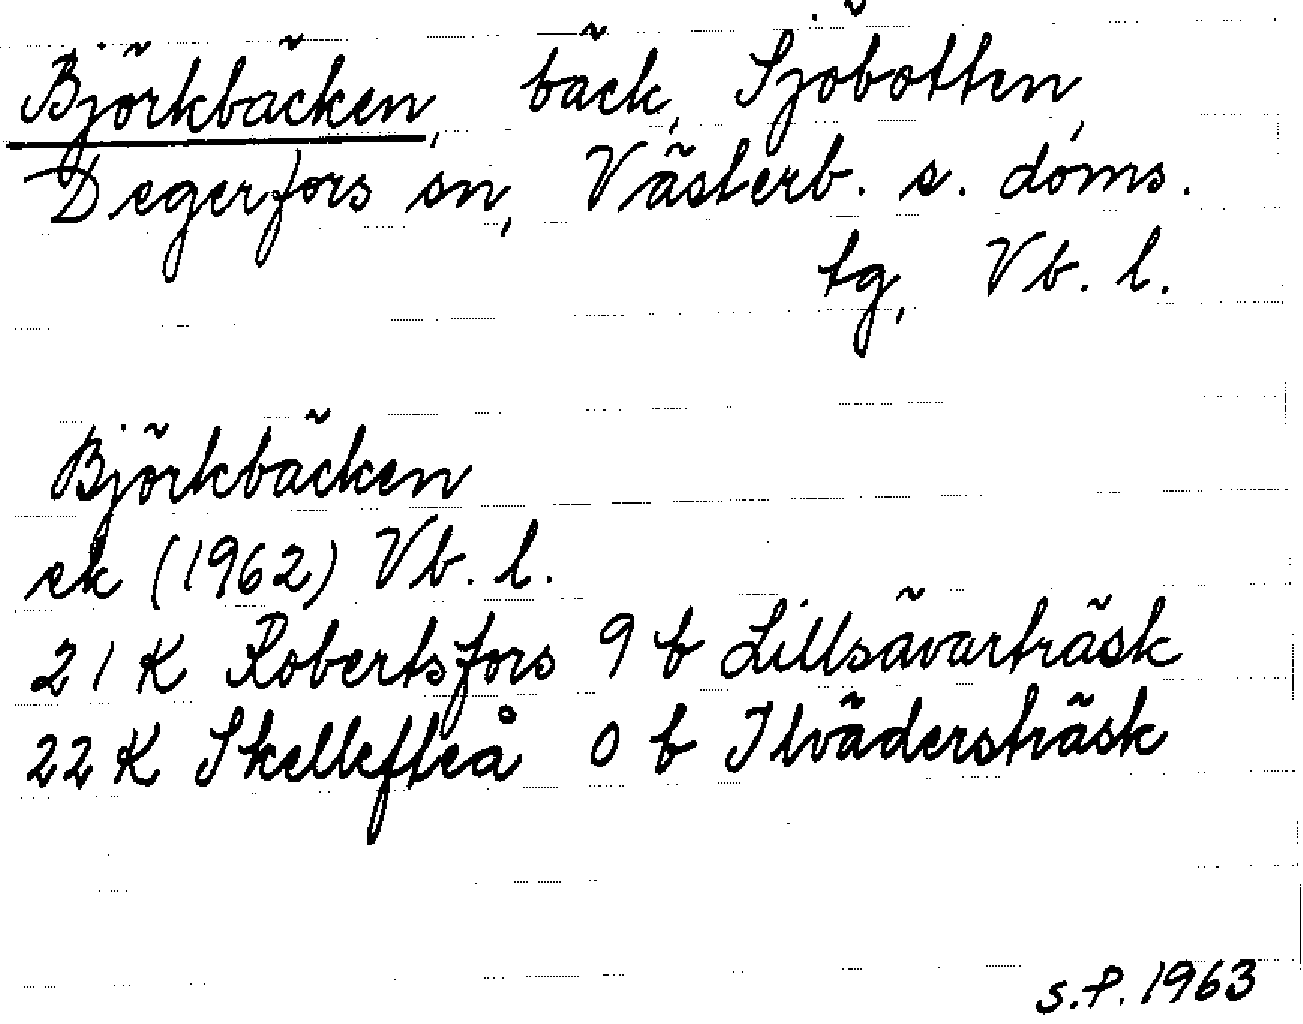 Björkbäcken, bäck, Sjöbotten,
Degerfors sn, Västerb. s. doms.
tg, Vb. l.
Björkbäcken
ek (1962) Vb. l.
21 K Robertsfors 9 b Lillsävarträsk
22 K Skellefteå 0 b Ilvädersträsk
s.P. 1963